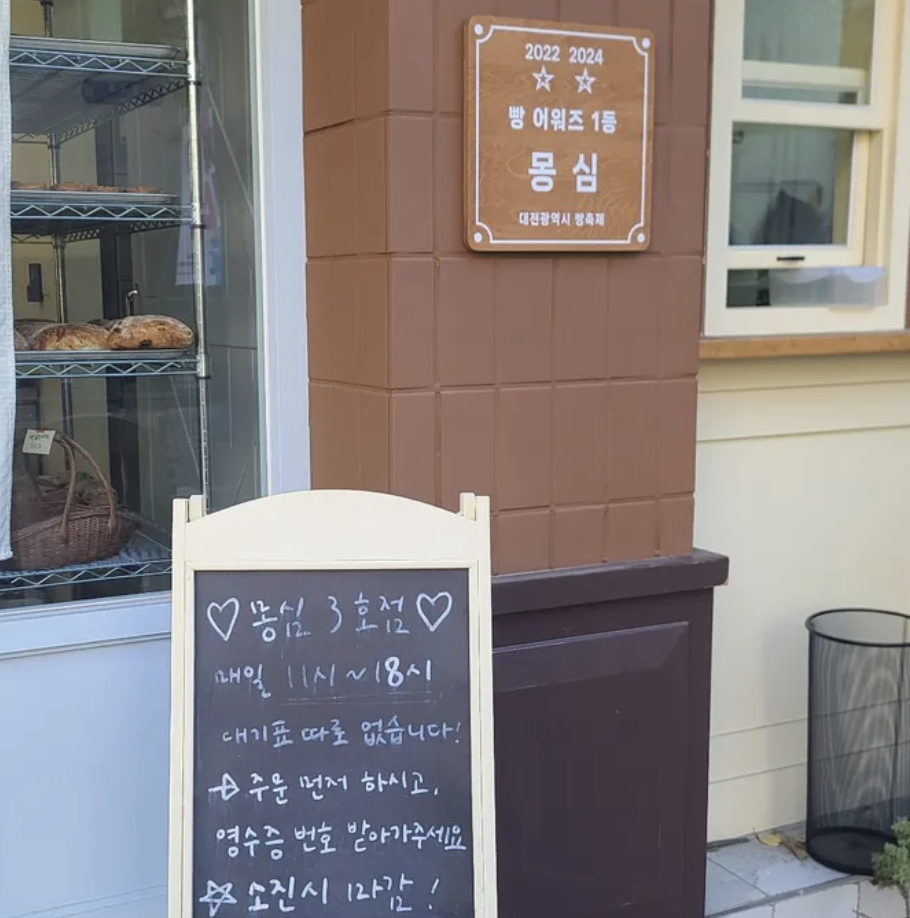 2022 2024
☆ ☆
빵 어워즈 1등
몽심
대전광역시 빵축제
♡ 몽심 3호점 ♡
매일 11시 ~ 18시
대기표 따로 없습니다!
→ 주문 먼저 하시고,
영수증 번호 받아가주세요
☆ 소진시 마감!